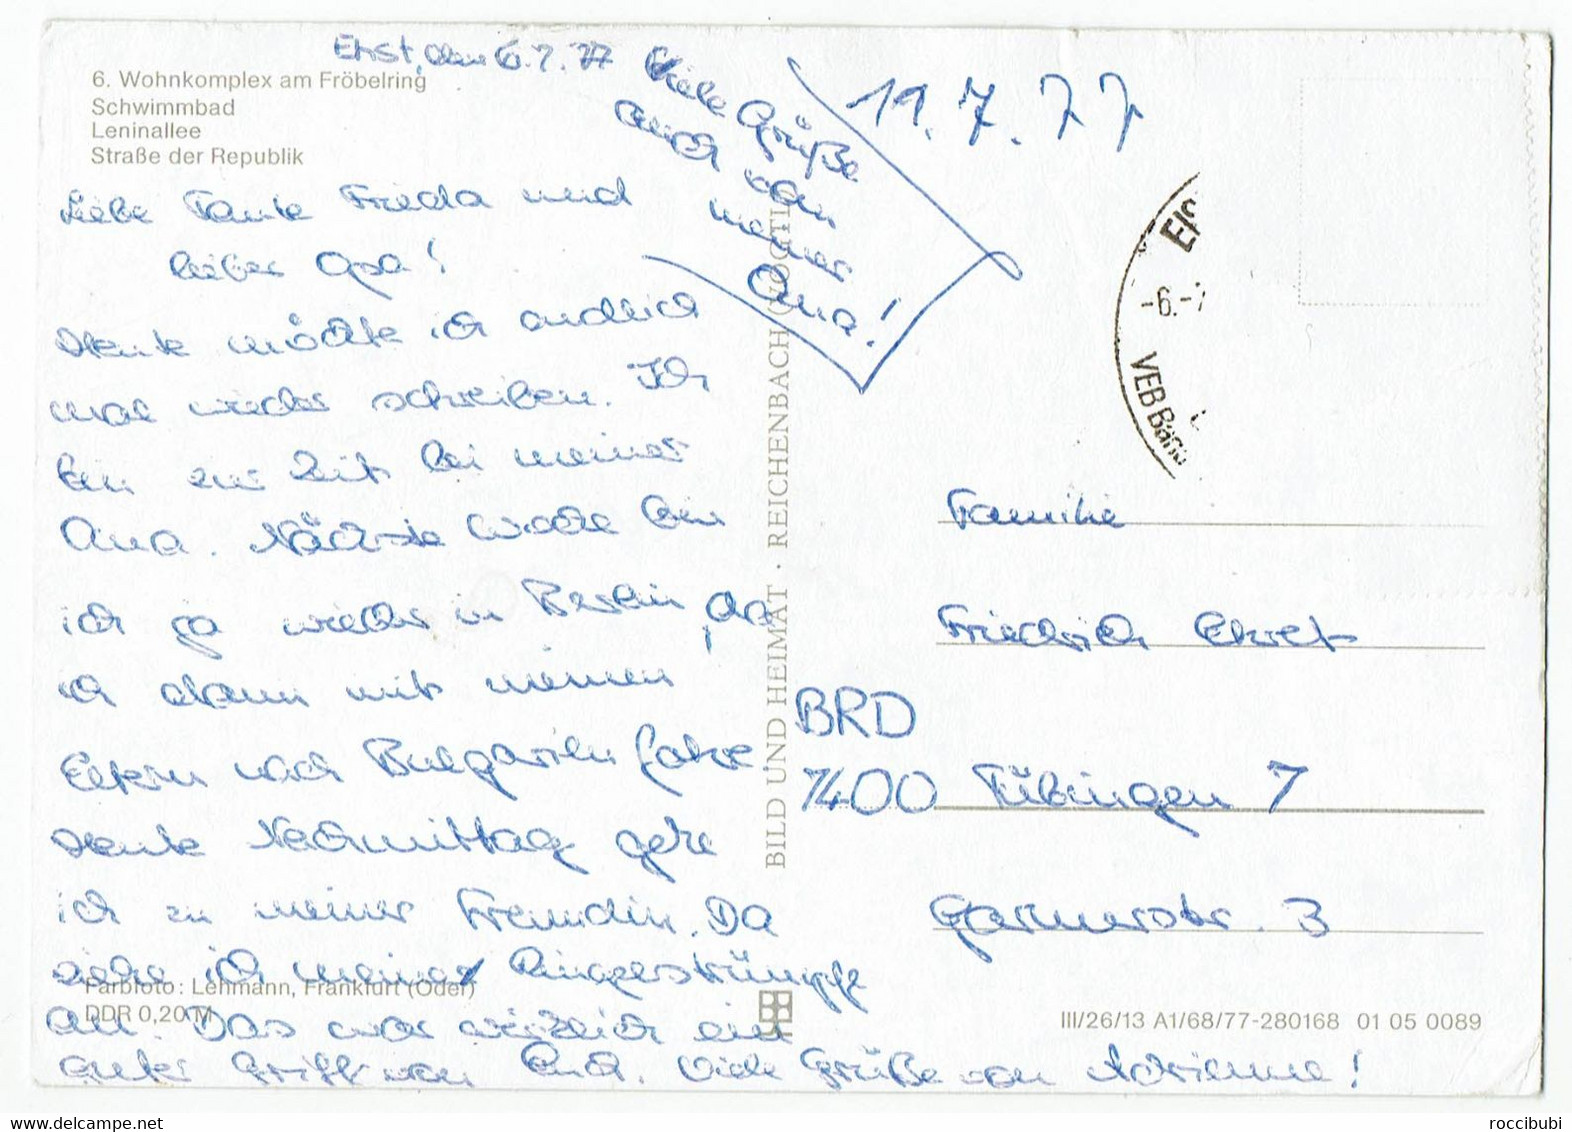 Ehst, den 6.7.77
6. Wohnkomplex am Fröbelring
Schwimmbad
Leninallee
Straße der Republik
Viele Grüße
auch von
meiner
Oma!
19.7.77
Liebe Tante Frieda und
lieber Opa!
Heute möchte ich endlich
mal wieder schreiben. Ich
bin zur Zeit bei meiner
Oma. Nächste Woche bin
ich ja wieder in Berlin, da
ich dann mit meinen
Eltern nach Bulgarien fahre
Heute Nachmittag gehe
ich zu meiner Freundin. Da
ziehe ich meine Ringelstrümpfe
an. Das war wirklich ein
guter Griff von Euch. Viele Grüße von Adrienne!
Farbfoto: Lehmann, Frankfurt (Oder)
DDR 0,20 M
BILD UND HEIMAT · REICHENBACH (VOGTL
EIS
-6.-7
VEB Band
Familie
Friedrich Ehret
BRD
7400 Tübingen 7
Gartnerstr. 3
III/26/13 A1/68/77-280168 01 05 0089
roccibubi